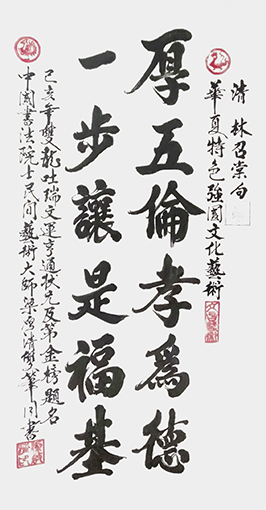 清林召棠句
華夏特色強国文化藝術
厚五倫孝為德
一步讓是福基
己亥年雙龍吐瑞文運亨通狀元及第金榜題名
中國書法院士民间藝術大師梁
清雙筆同書